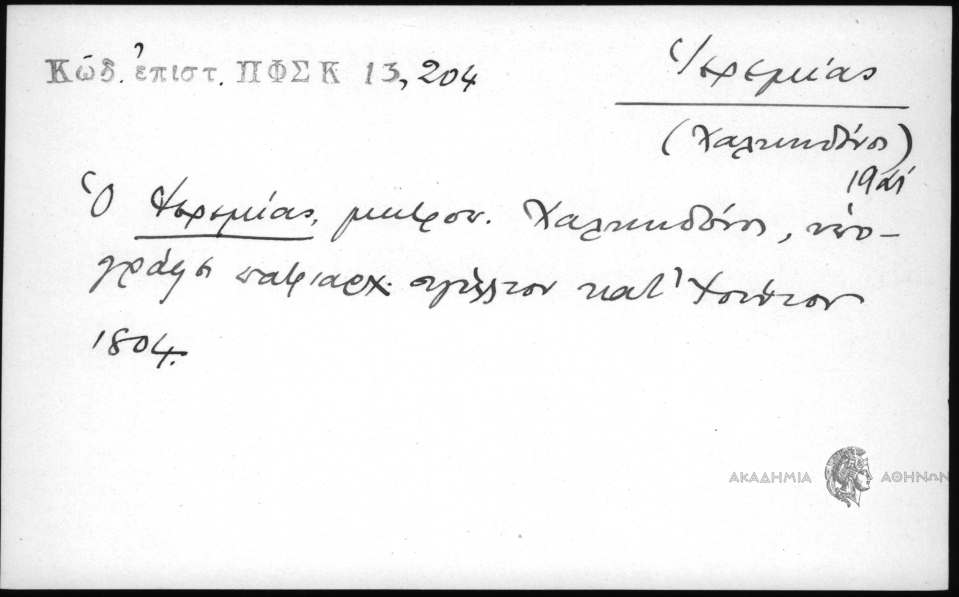 Κώδ. ἐπιστ. ΠΦΣΚ 13, 204
Ἱερεμίας
(Χαλκηδόνος)
19 αἰ
Ὁ Ἱερεμίας, μητροπ. Χαλκηδόνος, ὑπο-
γράφει πατριαρχ. σιγίλλιον κατ' Ἰούνιον
1804.
ΑΚΑΔΗΜΙΑ ΑΘΗΝΩΝ